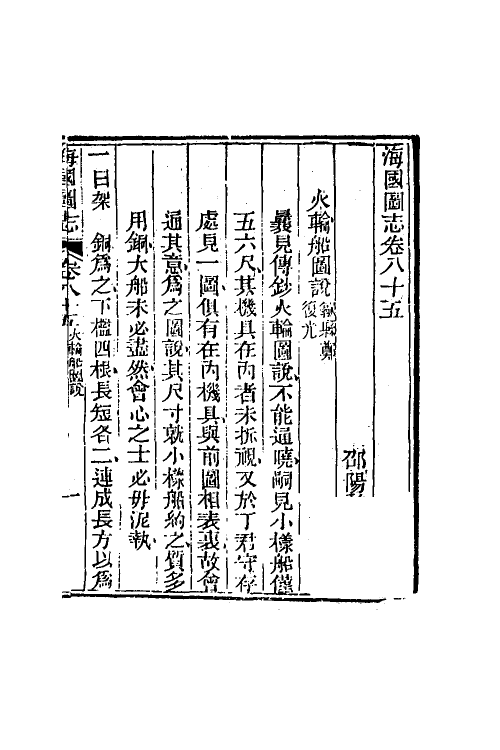 海國圖志卷八十五
邵陽
火輪船圖說 歙縣鄭
復光
曩見傳鈔火輪圖說不能通曉嗣見小樣船僅
五六尺其機具在內者未拆視又於丁君守存
處見一圖俱有在內機具與前圖相表裏故會
通其意爲之圖說其尺寸就小樣船約之質多
用銅大船未必盡然會心之士必毋泥執
一曰架 銅爲之下檻四根長短各二連成長方以爲
海國圖志 卷八十五 火輪船圖說 一